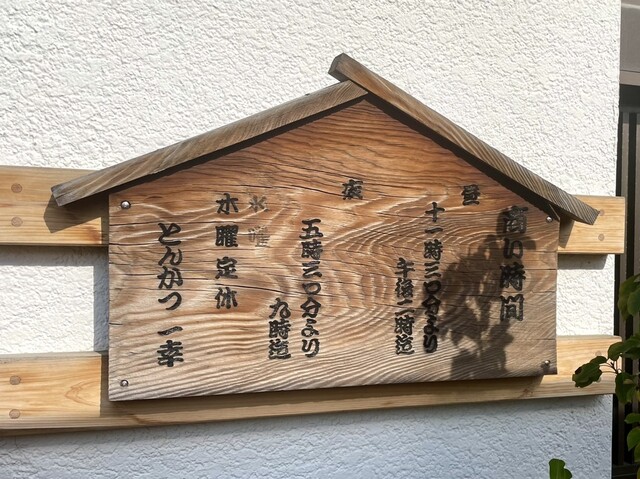 商い時間
昼
十一時三〇分より
午後二時迄
夜
五時三〇分より
九時迄
水曜
水曜定休
とんかつ 一幸